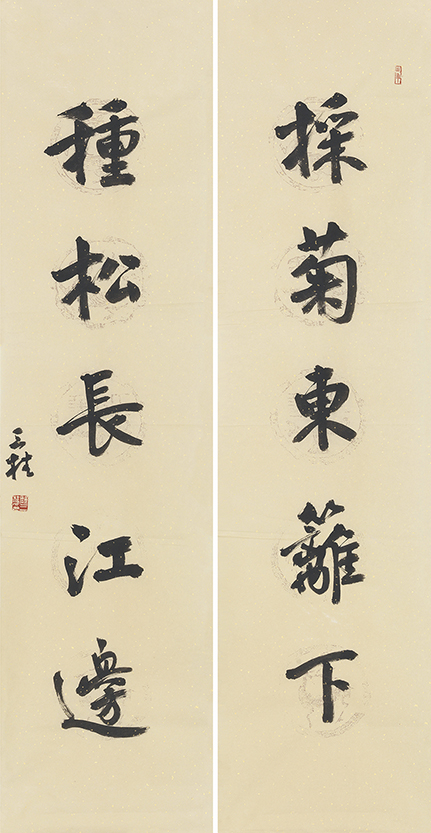 採菊東籬下
種松長江邊